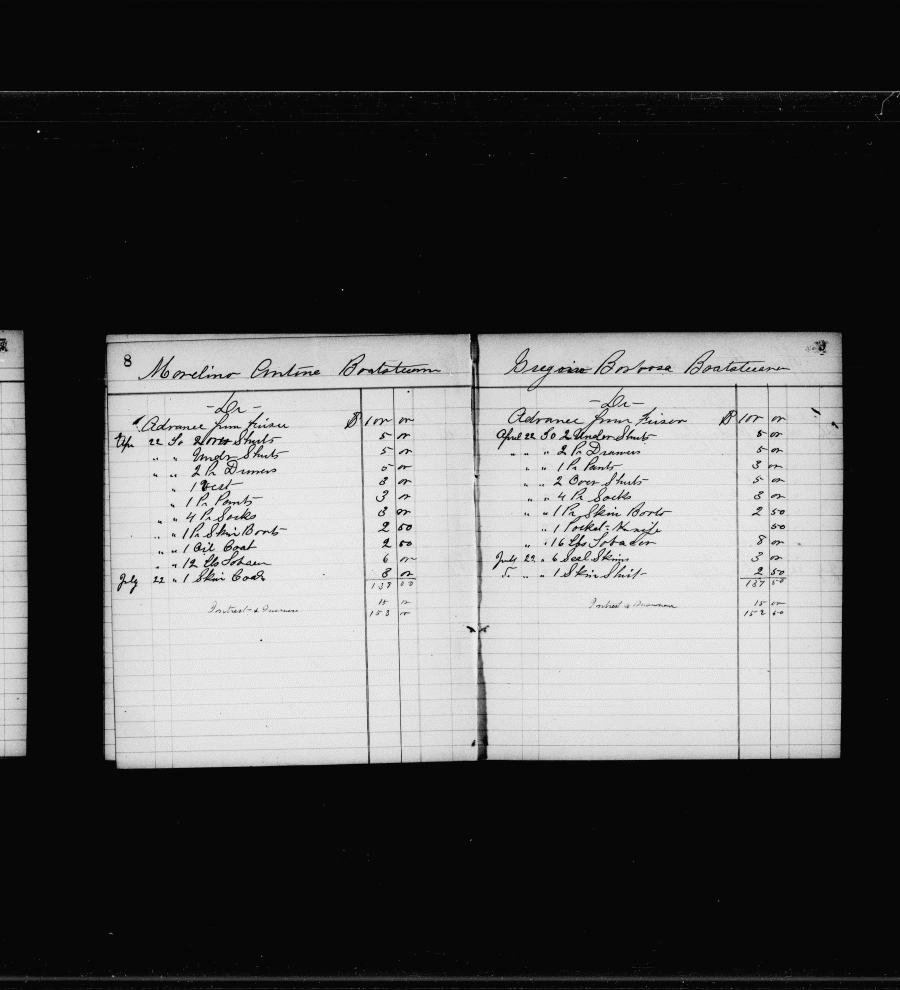 8
Morelino Antone Boatsteerer
- Dr -
Advance from Frisco $ 100 00
Apr 22 To 2 Over Shirts 5 00
" " Under Shirts 5 00
" " 2 Pr Drawers 5 00
" 1 Vest 3 00
" 1 Pr Pants 3 00
" " 4 Pr Socks 3 00
" " 1 Pr Skin Boots 2 50
" " 1 Oil Coat 2 50
" " 12 Lbs Tobacco 6 00
July 22 " 1 Skin Coat 8 00
138 00
Intrest & Insurance 15 00
153 00
Barbosa Boatsteerer
- Dr -
Advance from Frisco $ 100 00
April 22 To 2 Under Shirts 5 00
" " 2 Pr Drawers 5 00
" " 1 Pr Pants 3 00
" " 2 Over Shirts 5 00
" " 4 Pr Socks 3 00
" " 1 Pr Skin Boots 2 50
" 1 Pocket-Knife 50
" " 16 Lbs Tobacco 8 00
July 22 " 6 Seal Skins 3 00
" " 1 Skin Shirt 2 50
137 50
Intrest & Insurance 15 00
152 50